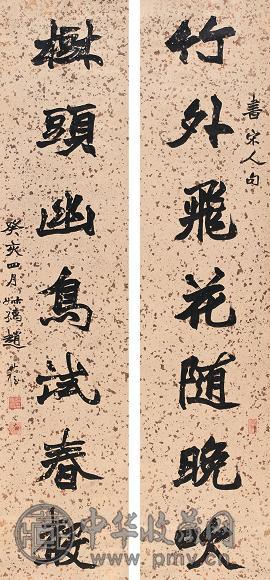 書宋人句
竹外飛花随晚吹
樹頭幽鳥試春聲
癸亥四月叔孺趙
中华收藏网
www.pmv.cn